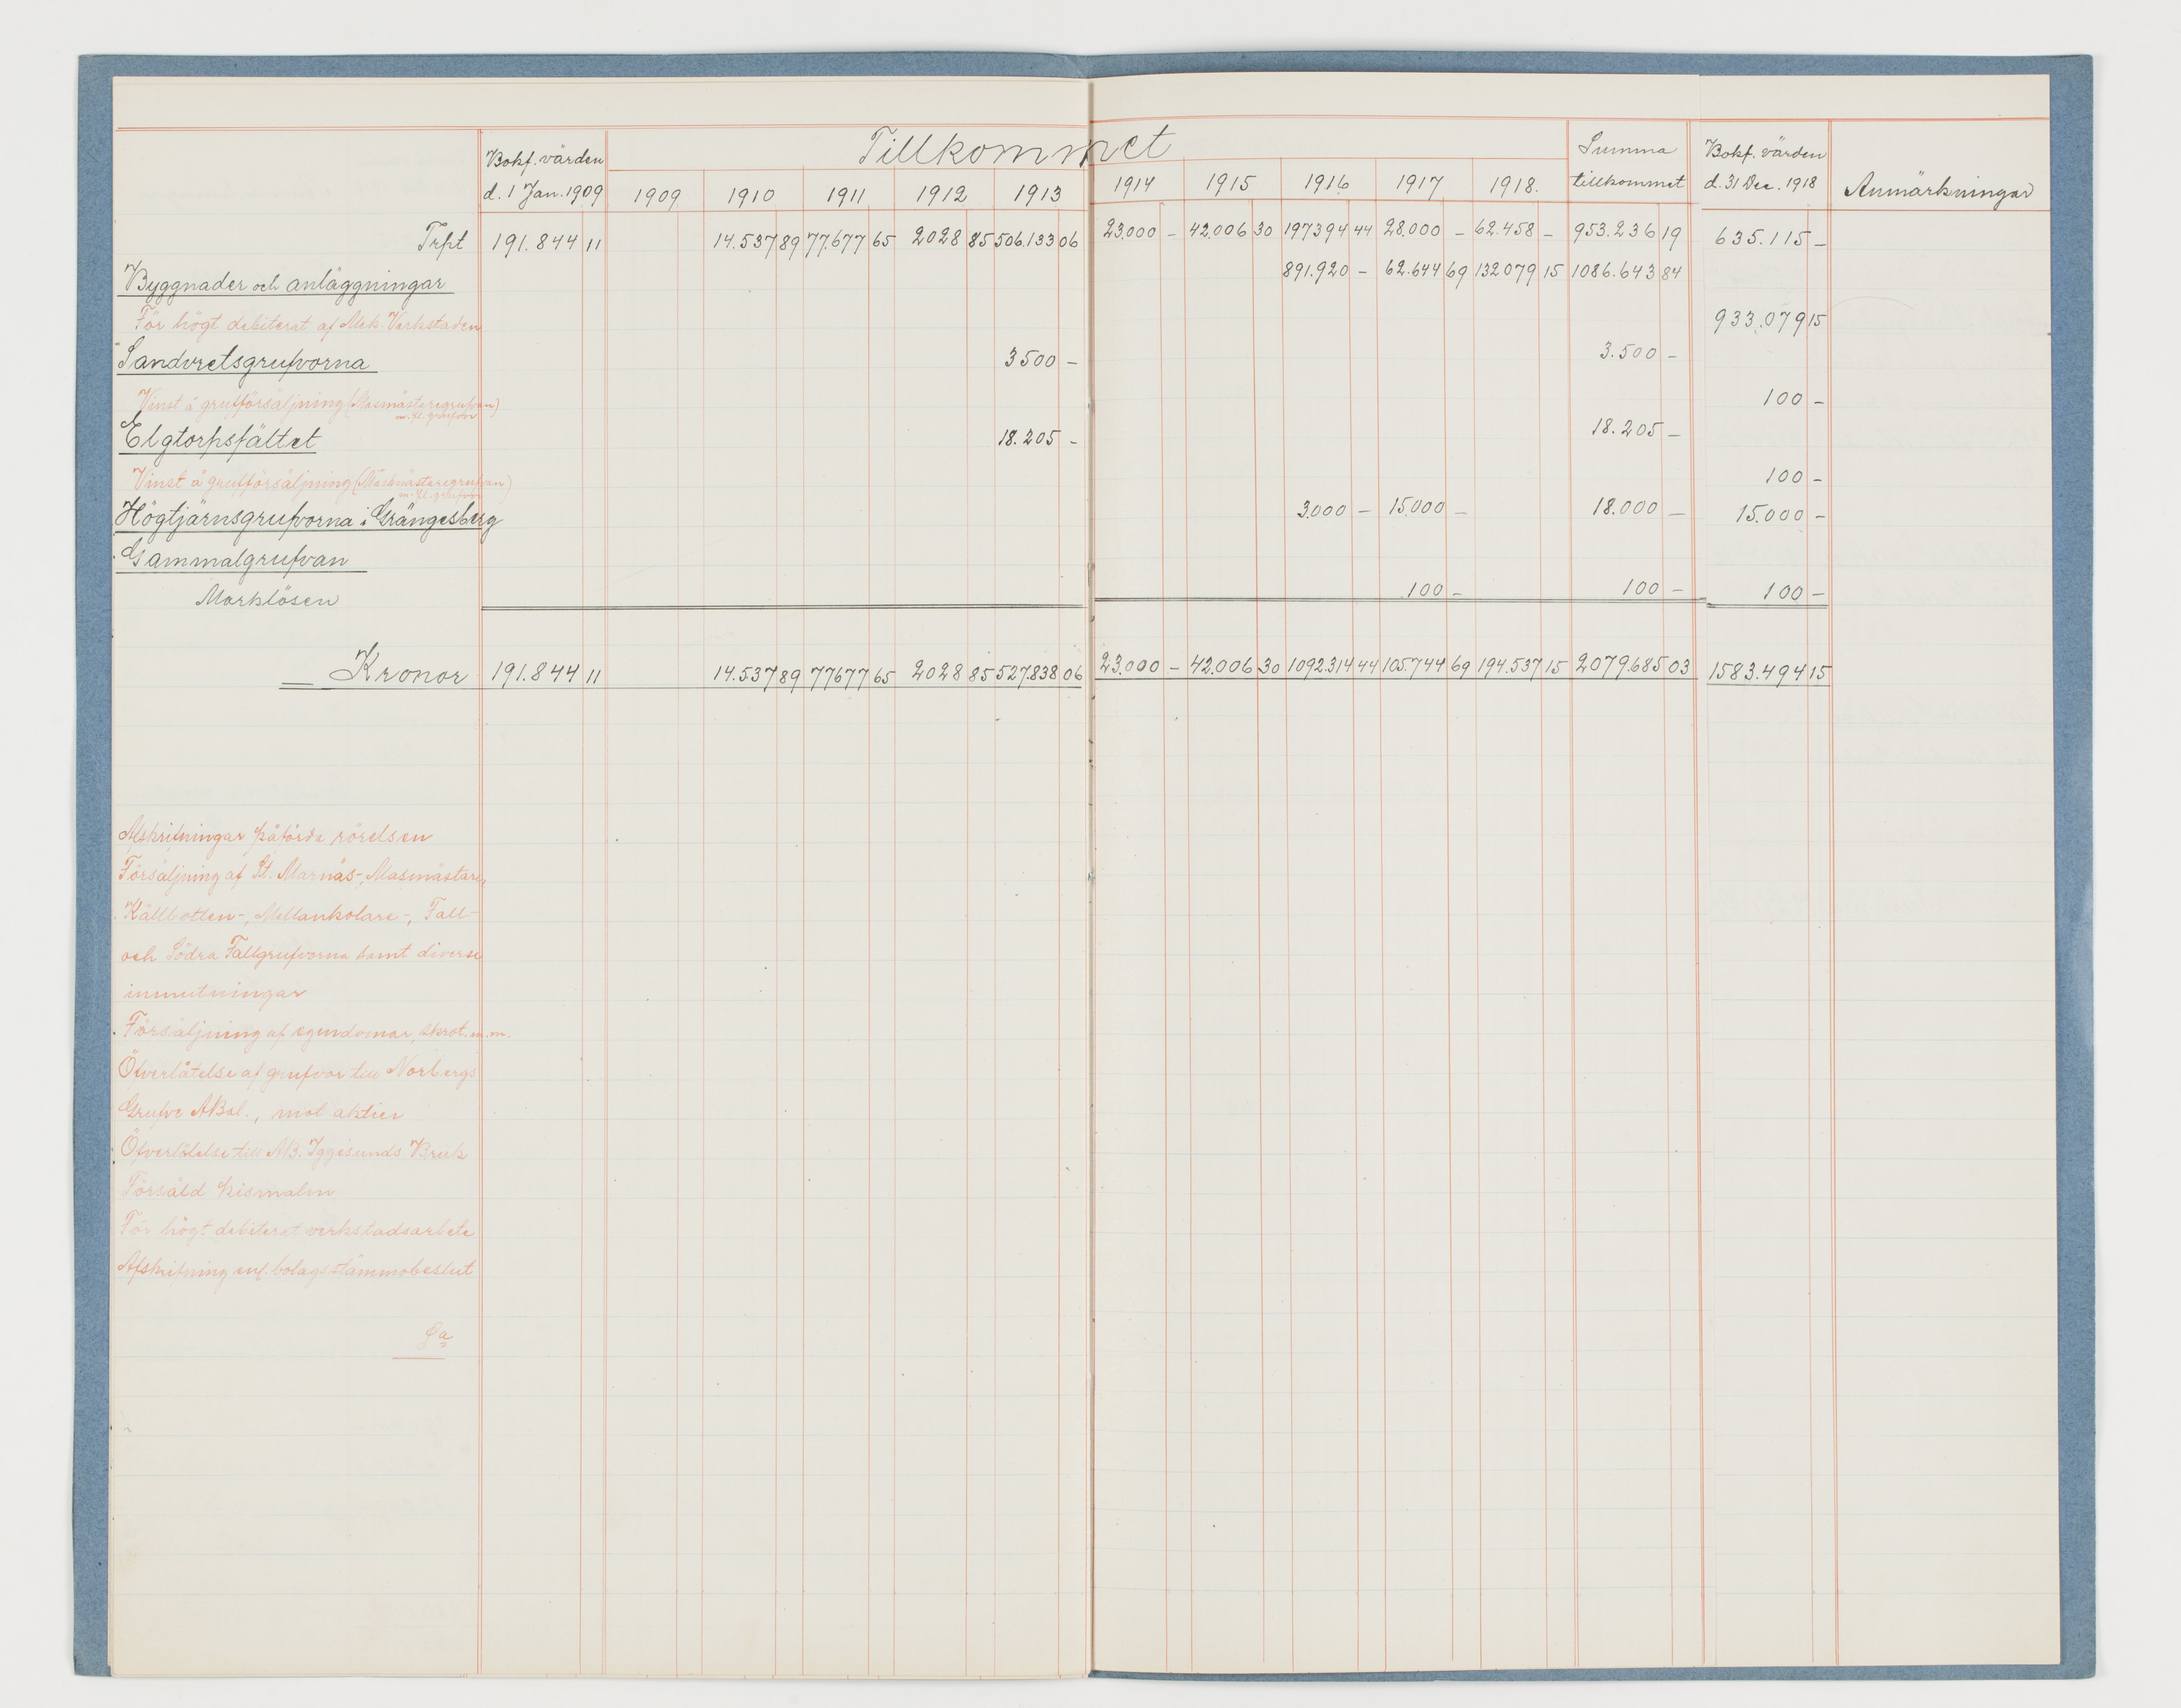 Bokf. värden d. 1 Jan. 1909 Tillkommet Summa tillkommet Bokf. värden d. 31 Dec. 1918 Anmärkningar
1909 1910 1911 1912 1913 1914 1915 1916 1917 1918.
Trpt 191.844 11 14.537 89 77.677 65 2028 85 506.133 06 23.000 – 42.006 30 197394 44 28.000 – 62.458 – 953.236 19 635.115 –
Byggnader och anläggningar 891.920 – 62.644 69 132079 15 1086.643 84
För högt debiterat af Mek. Verkstaden 933.079 15
Sandvretsgrufvorna 3500 – 3.500 –
Vinst å grufförsäljning (Masmästaregrufvan) m. fl. grufvor 100 –
Elgtorpsfältet 18.205 – 18.205 –
Vinst å grufförsäljning (Masmästaregrufvan) m. fl. grufvor 100 –
Högtjärnsgrufvorna i Grängesberg 3.000 – 15.000 – 18.000 – 15.000 –
Gammalgrufvan
Marklösen 100 – 100 – 100 –
Kronor 191.844 11 14.537 89 77677 65 2028 85 527.838 06 23.000 – 42.006 30 1092.314 44 105.744 69 194.537 15 2079.685 03 1583.494 15
Afskrifningar påförda rörelsen
Försäljning af St. Marnäs-, Masmästare-,
Källbotten-, Mellankolare-, Fall-
och Södra Fallgrufvorna samt diverse
inmutningar
Försäljning af egendomar, skrot. m. m.
Öfverlåtelse af grufvor till Norbergs
Grufve ABol., mot aktier
Öfverlåtelse till AB. Iggesunds Bruk
Försåld kismalm
För högt debiterat verkstadsarbete
Afskrifning enl. bolagsstämmobeslut
Sa